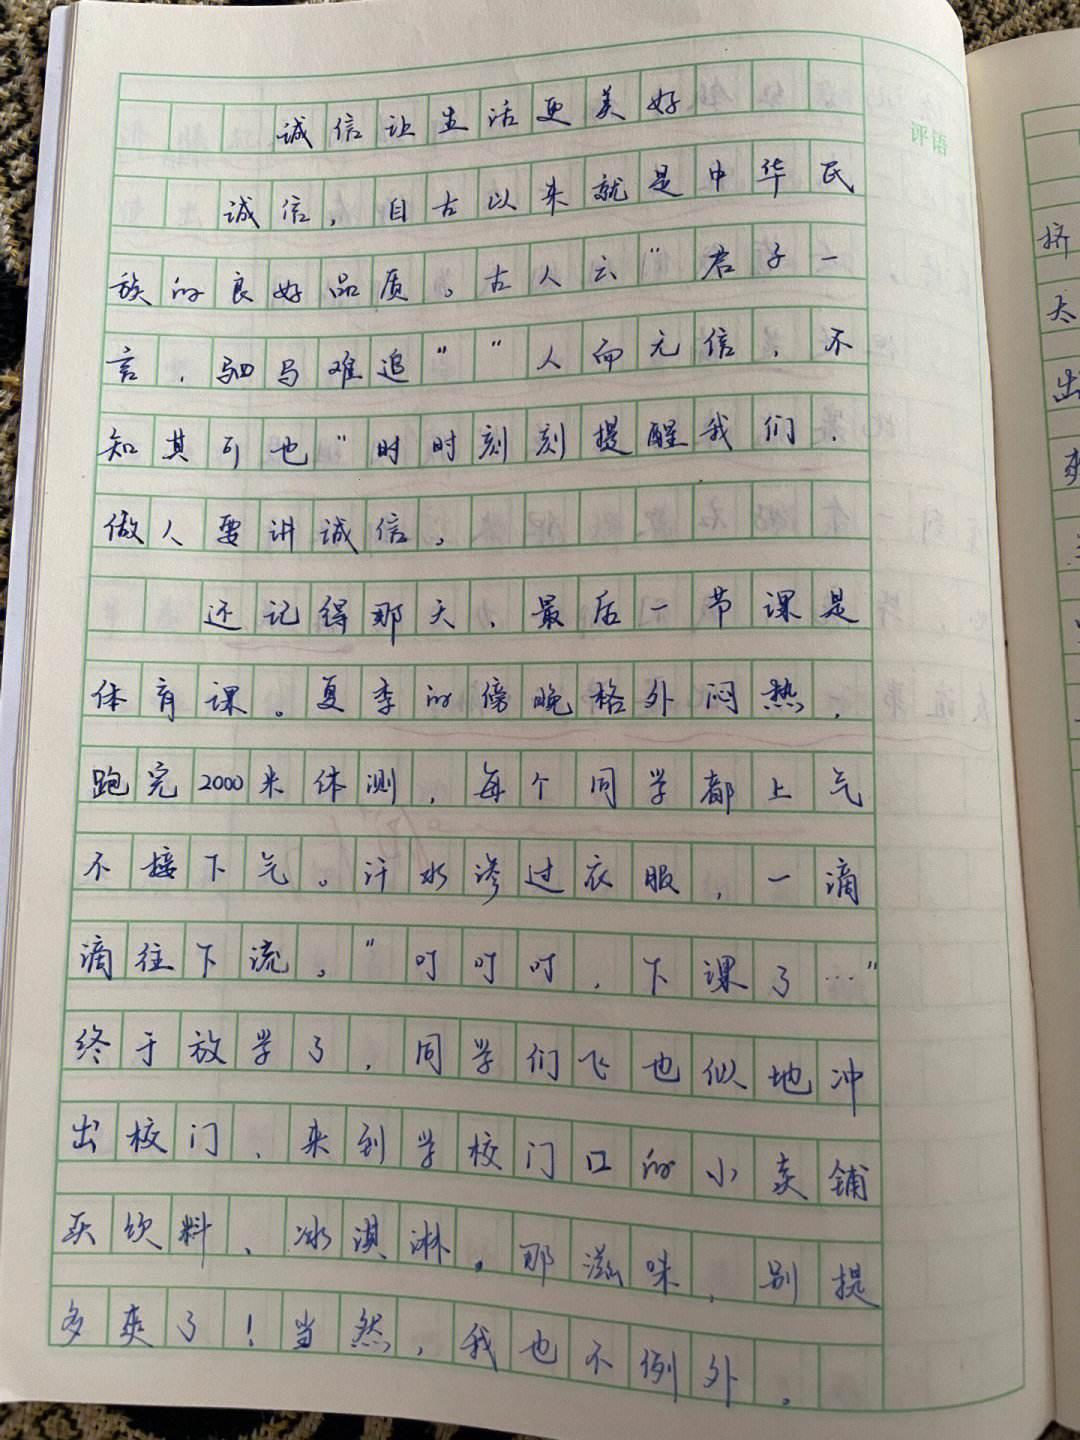 评语
诚信让生活更美好
诚信，自古以来就是中华民
族的良好品质。古人云“君子一
言，驷马难追”“人而无信，不
知其可也”时时刻刻提醒我们，
做人要讲诚信。
还记得那天，最后一节课是
体育课。夏季的傍晚格外闷热，
跑完2000米体测，每个同学都上气
不接下气。汗水渗过衣服，一滴
滴往下流。“叮叮叮，下课了…”
终于放学了，同学们飞也似地冲
出校门，来到学校门口的小卖铺
买饮料、冰淇淋。那滋味，别提
多爽了！当然，我也不例外。
挤
太
出
爽